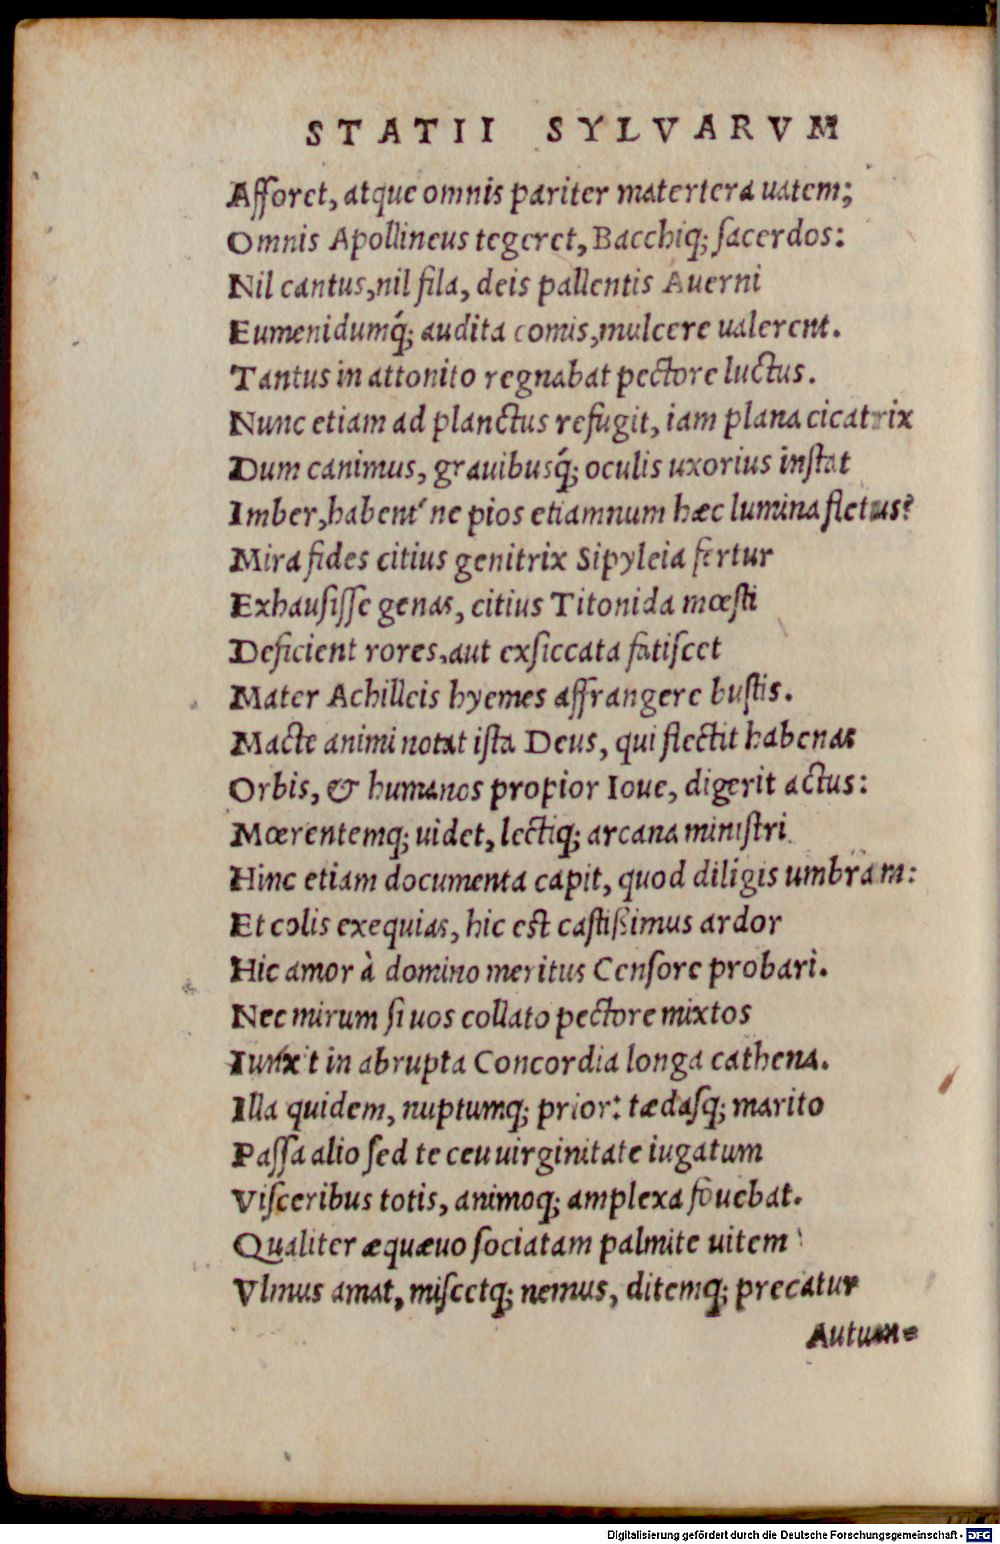 STATII SYLVARVM
Afforet, atque omnis pariter matertera uatem;
Omnis Apollineus tegeret, Bacchiq; sacerdos:
Nil cantus, nil fila, deis pallentis Auerni
Eumenidumq́; audita comis, mulcere ualerent.
Tantus in attonito regnabat pectore luctus.
Nunc etiam ad planctus refugit, iam plana cicatrix
Dum canimus, grauibusq́; oculis uxorius instat
Imber, habent' ne pios etiamnum hæc lumina fletus?
Mira fides citius genitrix Sipyleia fertur
Exhausisse genas, citius Titonida mœsti
Deficient rores, aut exsiccata fatiscet
Mater Achilleis hyemes affrangere bustis.
Macte animi notat ista Deus, qui flectit habenas
Orbis, & humanos propior Ioue, digerit actus:
Mœrentemq; uidet, lectiq; arcana ministri
Hinc etiam documenta capit, quod diligis umbram:
Et colis exequias, hic est castißimus ardor
Hic amor à domino meritus Censore probari.
Nec mirum si uos collato pectore mixtos
Iunxit in abrupta Concordia longa cathena.
Illa quidem, nuptumq; prior: tædasq; marito
Passa alio sed te ceu uirginitate iugatum
Visceribus totis, animoq; amplexa fouebat.
Qualiter æquæuo sociatam palmite uitem
Vlmus amat, miscetq; nemus, ditemq; precatur
Autum=
Digitalisierung gefördert durch die Deutsche Forschungsgemeinschaft - DFG